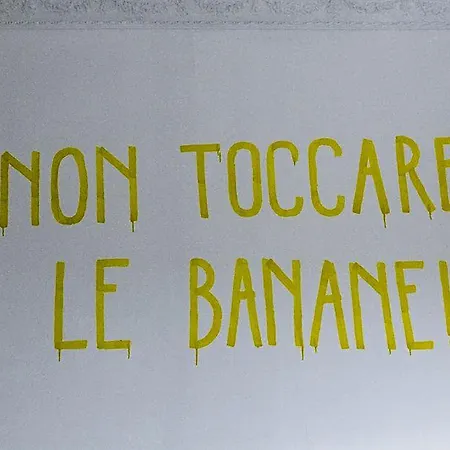 NON TOCCARE
LE BANANE!